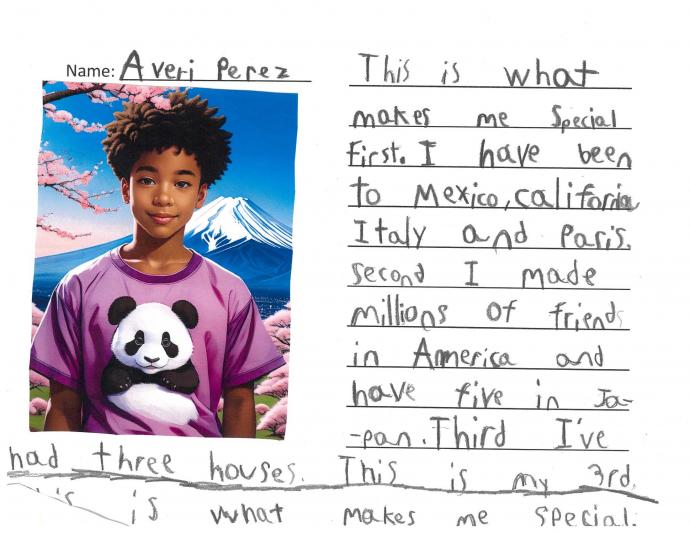 Name: Averi Perez
This is what
makes me special
First. I have been
to Mexico, califorina
Italy and Paris.
second I made
millions of friends
in America and
have five in Ja-
-pan. Third I've
had three houses. This is my 3rd.
is what makes me special.